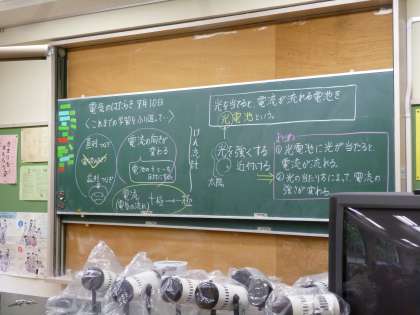 電気のはたらき 9月10日
＜これまでの学習をふり返って…＞
直列つなぎ
並列つなぎ
電流の向きが
変わる
電流
(電気の流れ)
＋極→－極
光を当てると、電流が流れる電池を
光電池という。
光を強くする
近付ける
太陽
まとめ
①光電池に光が当たると
電流が流れる。
②光の当たり方によって、電流の
強さが変わる。